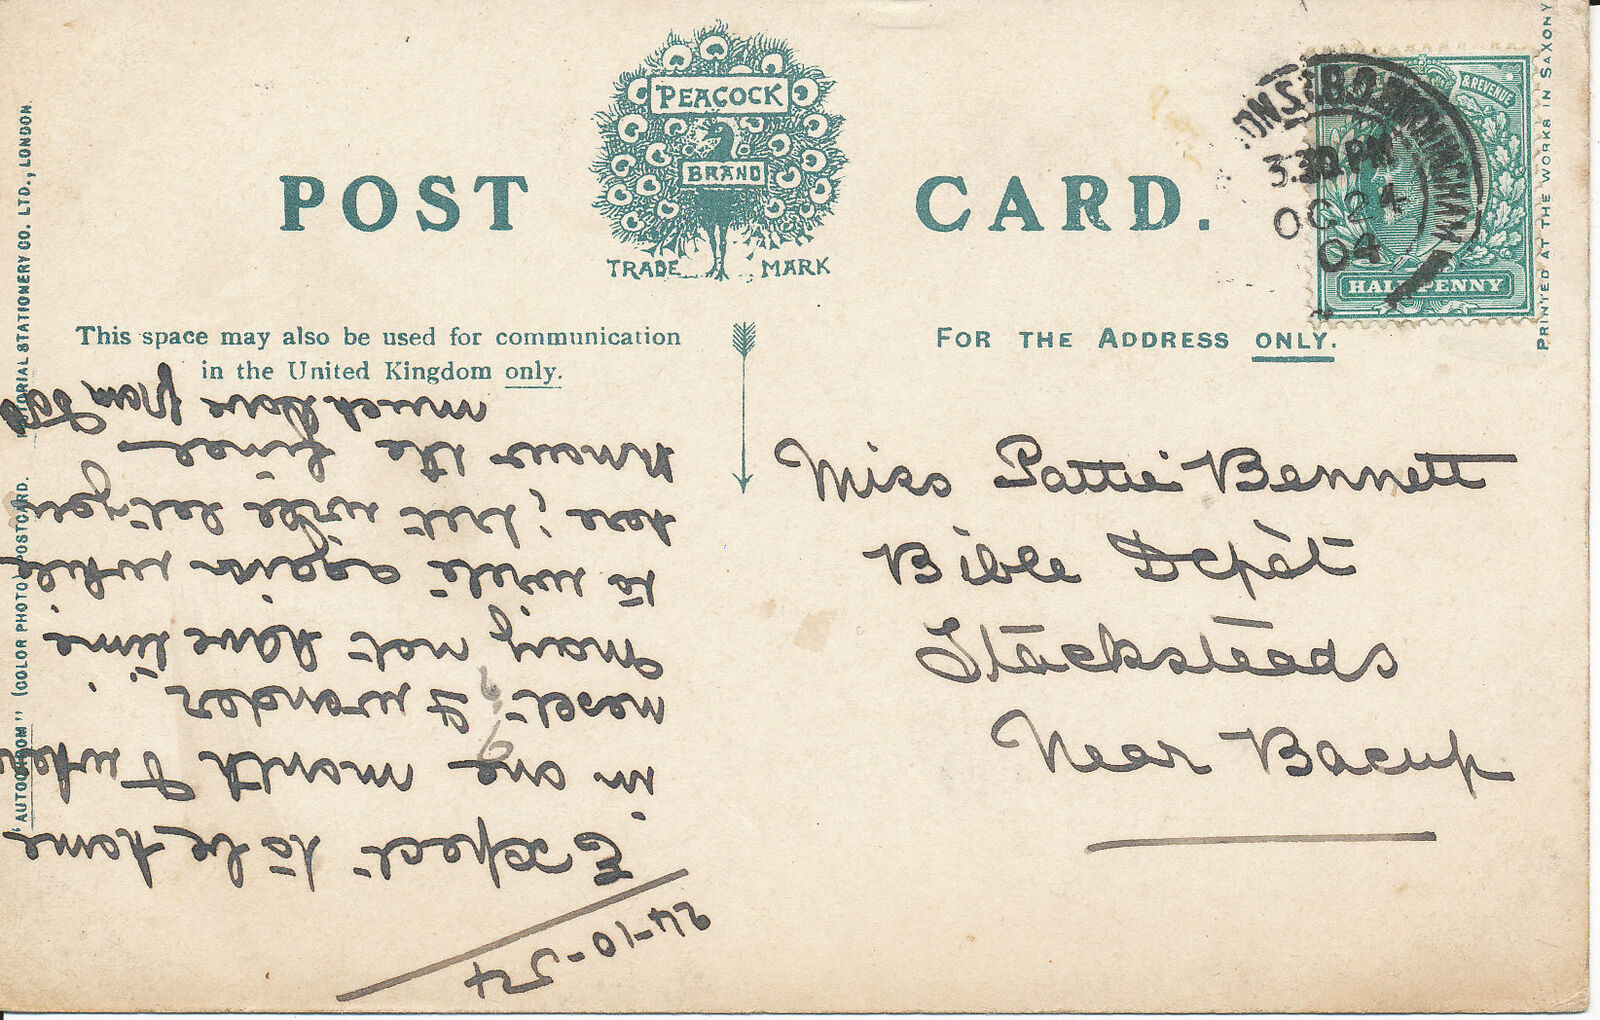 POST CARD.
PEACOCK
BRAND
TRADE MARK
This space may also be used for communication
in the United Kingdom only.
FOR THE ADDRESS ONLY.
& REVENUE
HALFPENNY
B.O. BIRMINGHAM
3.30.PM
OC 24
04
Miss Pattie Bennett
Bible Depôt
Stacksteads
Near Bacup
24-10-04
Expect to be home
in one month & when
next I wonder.
May not have time
to write again while
here; but will let you
know the
much love from
"AUTOCHROM" (COLOR PHOTO) POSTCARD. PICTORIAL STATIONERY CO. LTD., LONDON.
PRINTED AT THE WORKS IN SAXONY